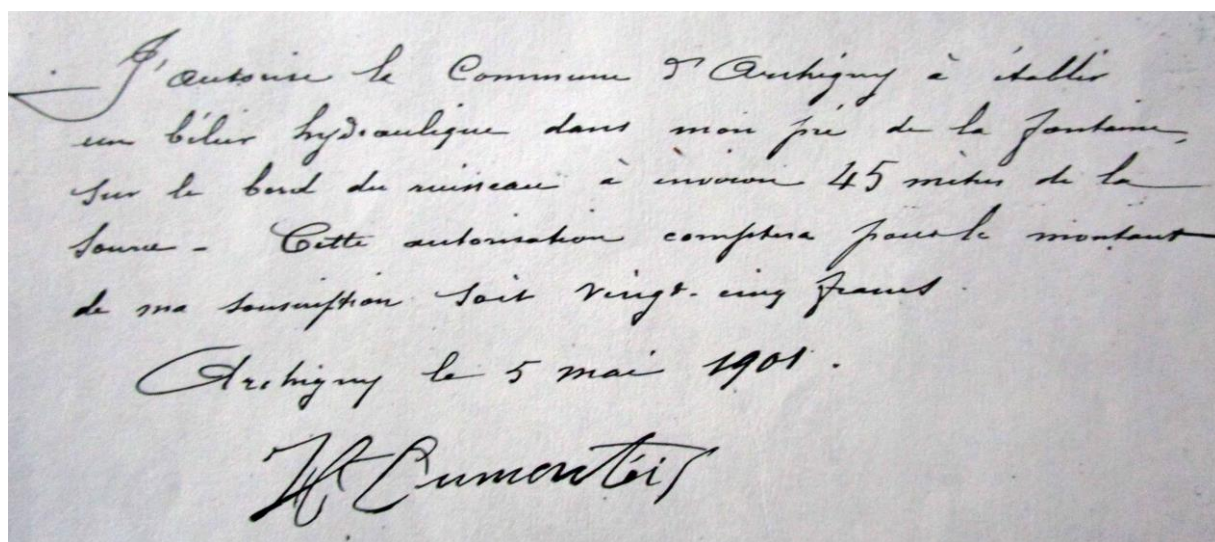 J'autorise la Commune d'Archigny à établir
un bélier hydraulique dans mon pré de la fontaine,
sur le bord du ruisseau à environ 45 mètres de la
source - Cette autorisation comptera pour le montant
de ma souscription soit vingt-cinq francs.
Archigny le 5 mai 1901.